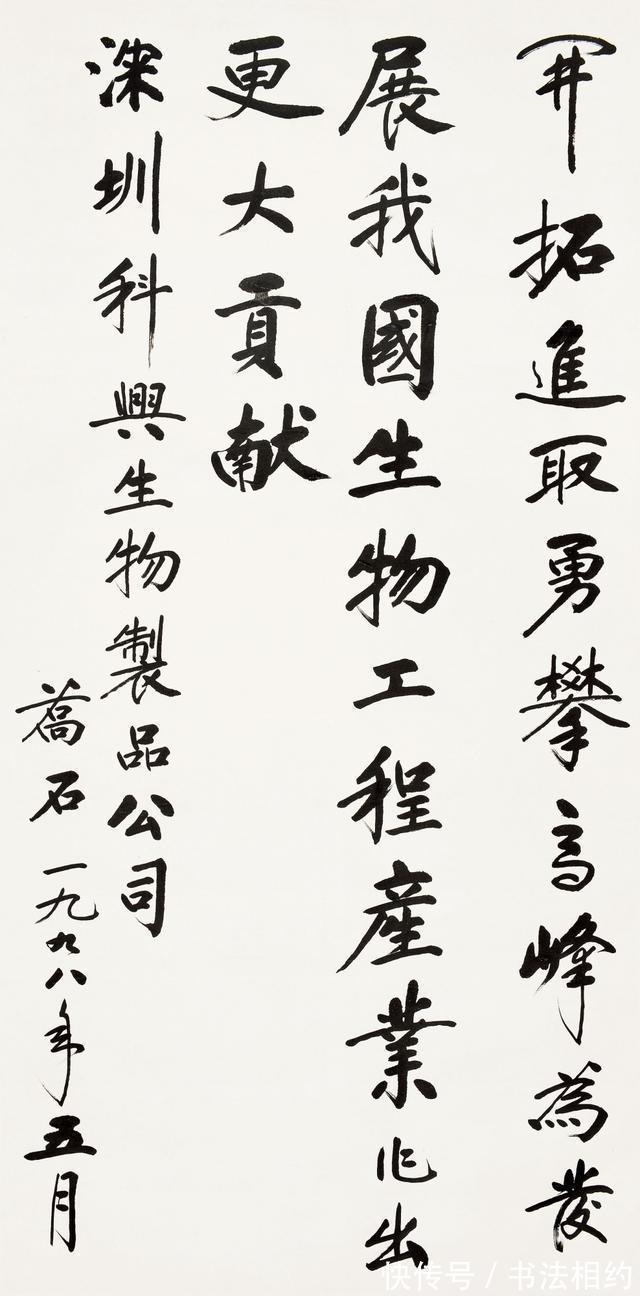 開拓進取勇攀高峰為發
展我國生物工程產業作出
更大貢献
深圳科興生物製品公司
喬石一九九八年五月
快传号／书法相约